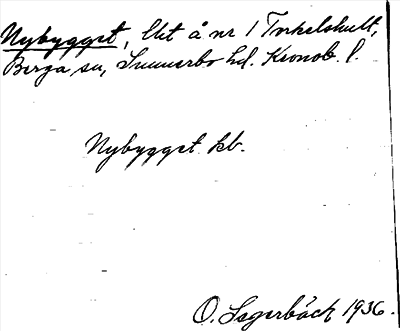 Nybygget, lht å nr 1 Torkelshult,
Berga sn, Sunnerbo hd. Kronob. l.
Nybygget kb.
O. Sagerbäck 1936.